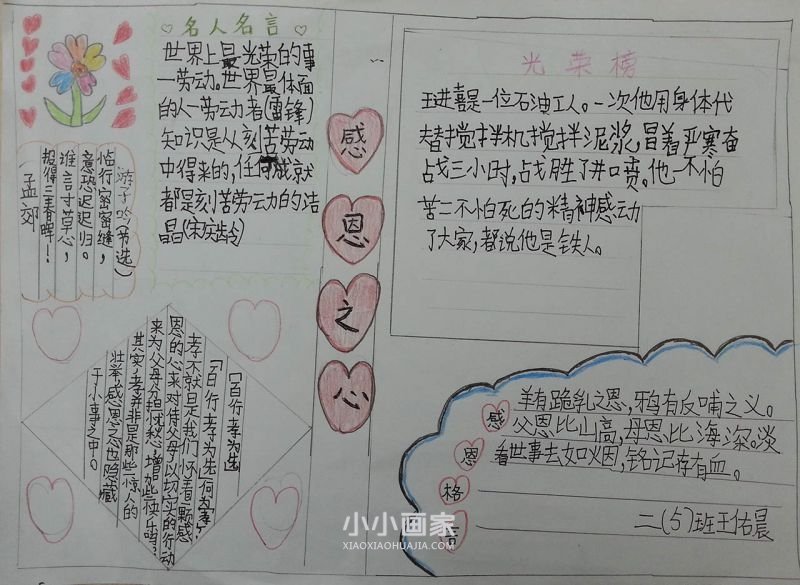 名人名言
世界上最光荣的事
一劳动。世界最体面
的人一劳动者(雷锋)
知识是从刻苦劳动
中得来的,任何成就
都是刻苦劳云力的洁
晶(宋庆龄)
游子吟(节选)
临行密密缝,
意恐迟迟归。
谁言寸草心,
报得三春晖!
孟郊
感
恩
之
心
光荣榜
王进喜是一位石油工人。一次他用身体代
替搅拌机搅拌泥浆,冒着严寒奋
占戈三小时,占戈胜了井喷。他一不怕
苦二不怕死的精神感动
了大家,都说他是铁人。
「百行孝为先」
「百行孝为先」何为孝,
孝不就是我们怀着一颗感
恩的心来对待父母,以切实的行动
来为父母分担忧愁,增加些快乐吗,
其实,孝并非是那些惊人的
壮举,感恩之心也隐藏
于小事之中。
感恩格言
羊有跪乳之恩,鸦有反哺之义。
父恩比山高,母恩比海深。淡
看世事去如烟,铭记存有血。
二(5)班王佑晨
小小画家
XIAOXIAOHUAJIA.COM